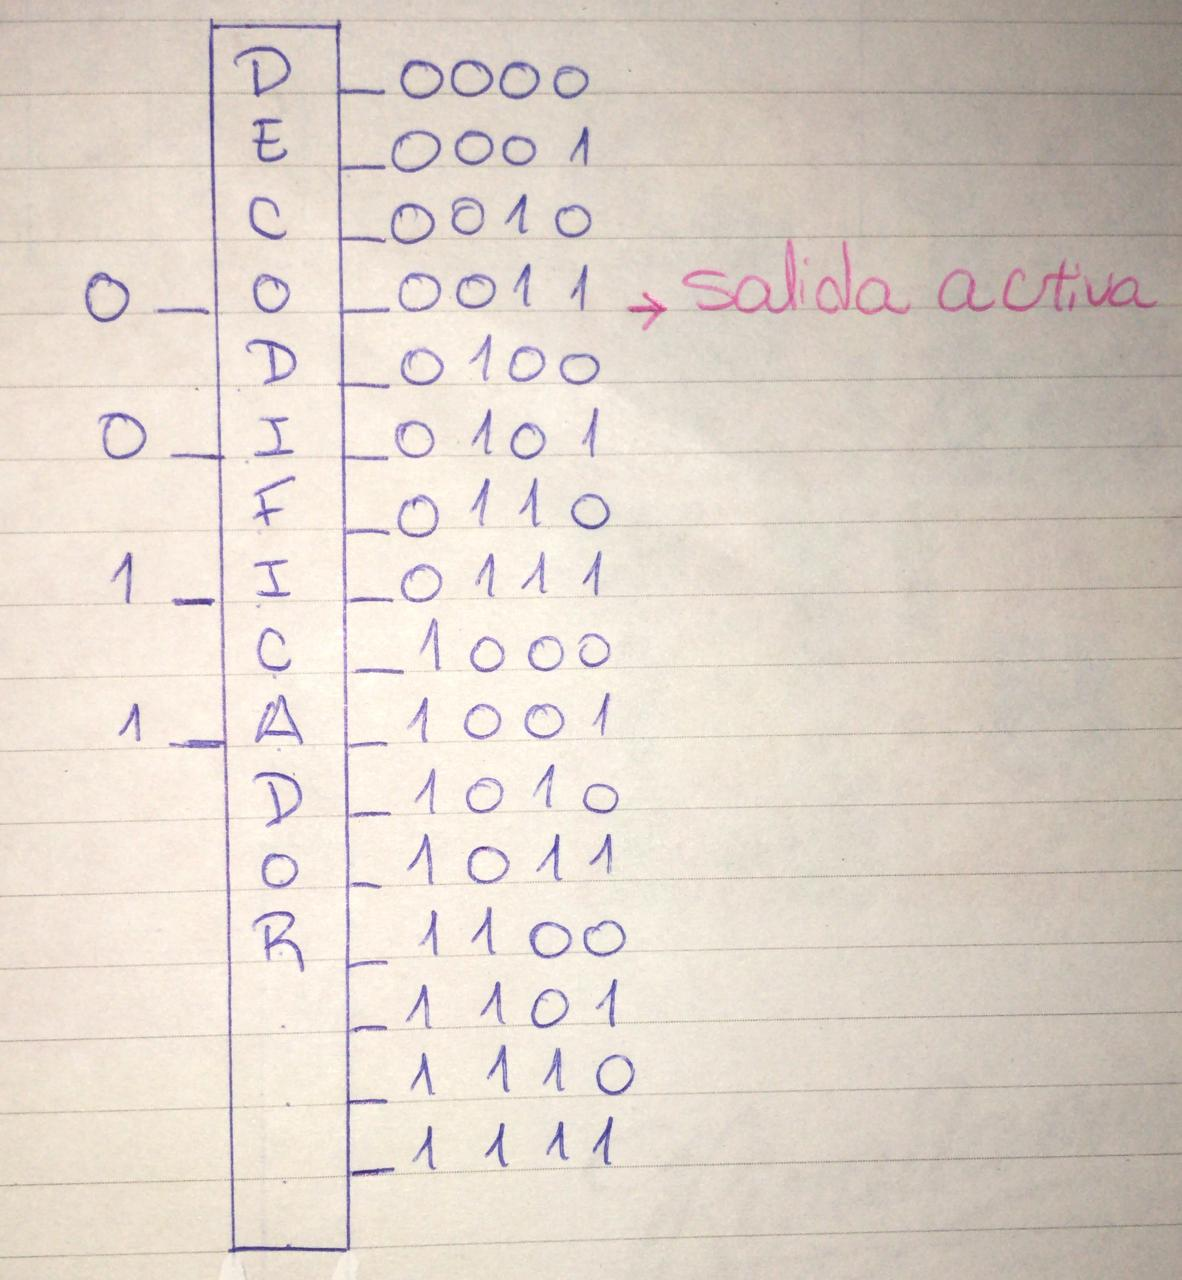 DECODIFICADOR
0
0
1
1
0000
0001
0010
0011 → salida activa
0100
0101
0110
0111
1000
1001
1010
1011
1100
1101
1110
1111